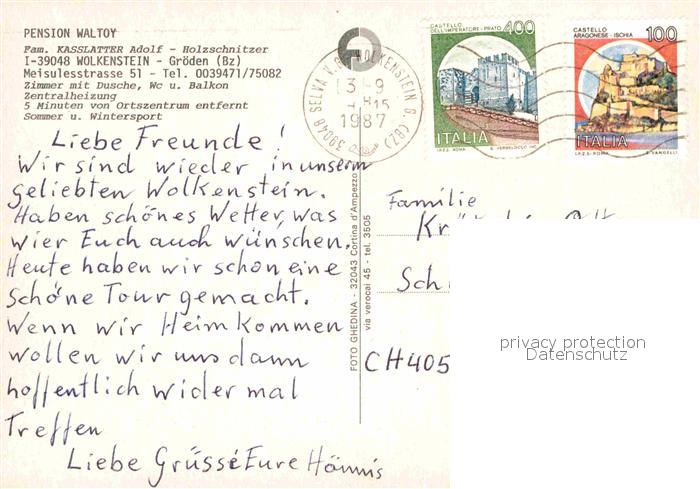 PENSION WALTOY
Fam. KASSLATTER Adolf - Holzschnitzer
I-39048 WOLKENSTEIN - Gröden (Bz)
Meisulesstrasse 51 - Tel. 0039471/75082
Zimmer mit Dusche, Wc u. Balkon
Zentralheizung
5 Minuten von Ortszentrum entfernt
Sommer u. Wintersport
Liebe Freunde!
Wir sind wieder in unserm
geliebten Wolkenstein.
Haben schönes Wetter, was
wier Euch auch wünschen.
Heute haben wir schon eine
schöne Tour gemacht.
Wenn wir Heim kommen
wollen wir uns dann
hoffentlich wider mal
Treffen
Liebe Grüsse Eure
39048 SELVA V.G. WOLKENSTEIN G. (BZ)
1987
CASTELLO
DELL'IMPERATORE - PRATO
400
ITALIA
I.P.Z.S. ROMA
CASTELLO
ARAGONESE - ISCHIA
100
ITALIA
I.P.Z.S. - ROMA
E. VANGELLI
FOTO GHEDINA - 32043 Cortina d'Ampezzo
via verocai 45 - tel. 3505
Familie
Sch
CH405
privacy protection
Datenschutz